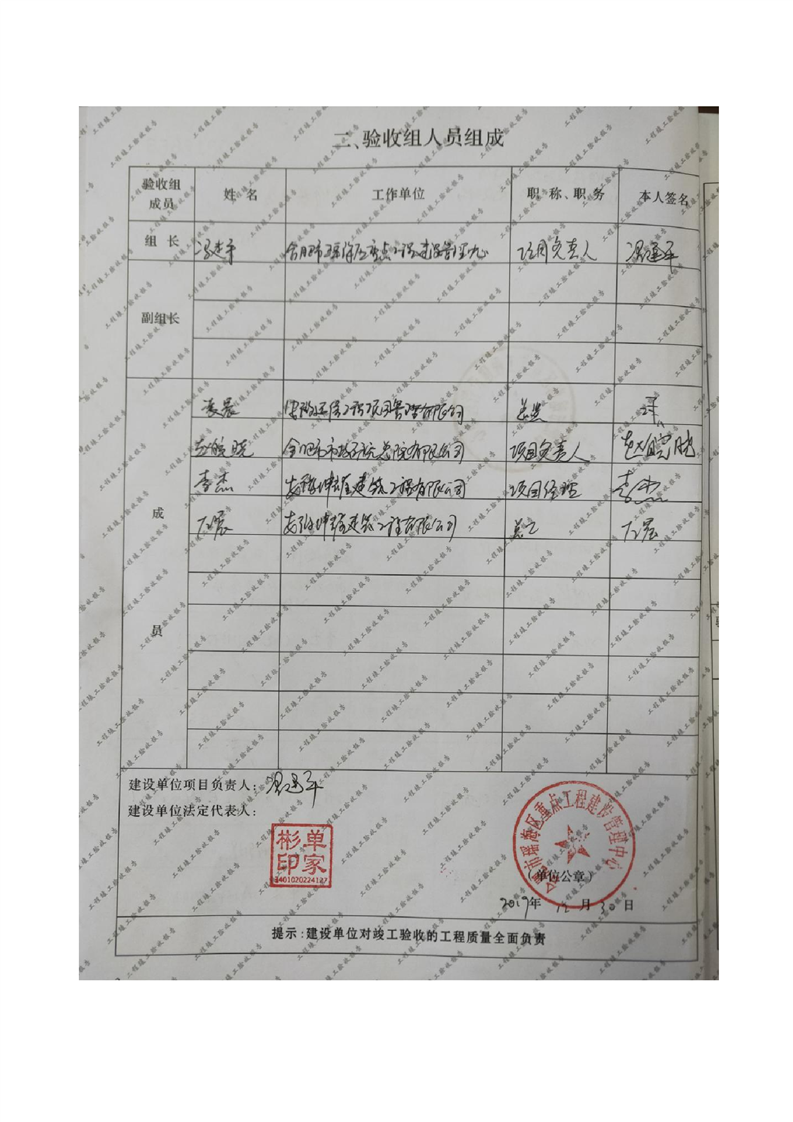 二、验收组人员组成
验收组成员 姓名 工作单位 职称、职务 本人签名
组长 冯建平 合肥市瑶海区重点工程建设管理中心 项目负责人 冯建平
副组长
工程项目管理有限公司 总监
赵皖晓 合肥市市政设计总院有限公司 项目负责人 赵皖晓
成 李杰 安徽坤 建筑工程有限公司 项目经理 李杰
安徽坤 建筑工程有限公司 总工
员
建设单位项目负责人: 冯建平
建设单位法定代表人:
单家彬印
3401020224127
合肥市瑶海区重点工程建设管理中心
(单位公章)
2017年 12月 30日
提示:建设单位对竣工验收的工程质量全面负责
工程竣工验收报告